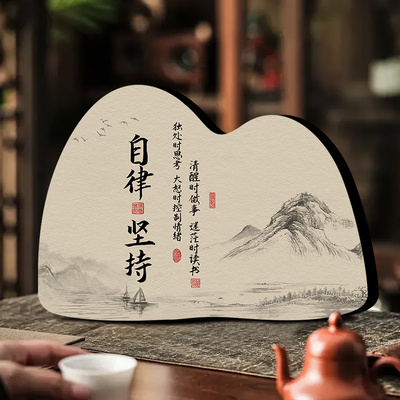 清醒时做事 迷茫时读书
独处时思考 大怒时控制情绪
自律 坚持